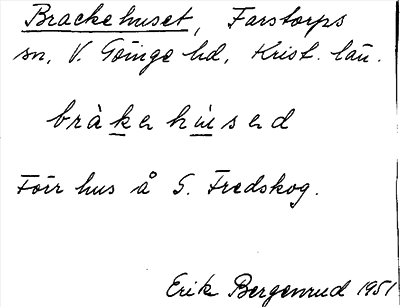 Brackehuset, Farstorps
sn, V. Göinge hd, Krist. län.
bràkeˌ húserd
Förr hus å S. Fredskog.
Erik Bergenrud 1951